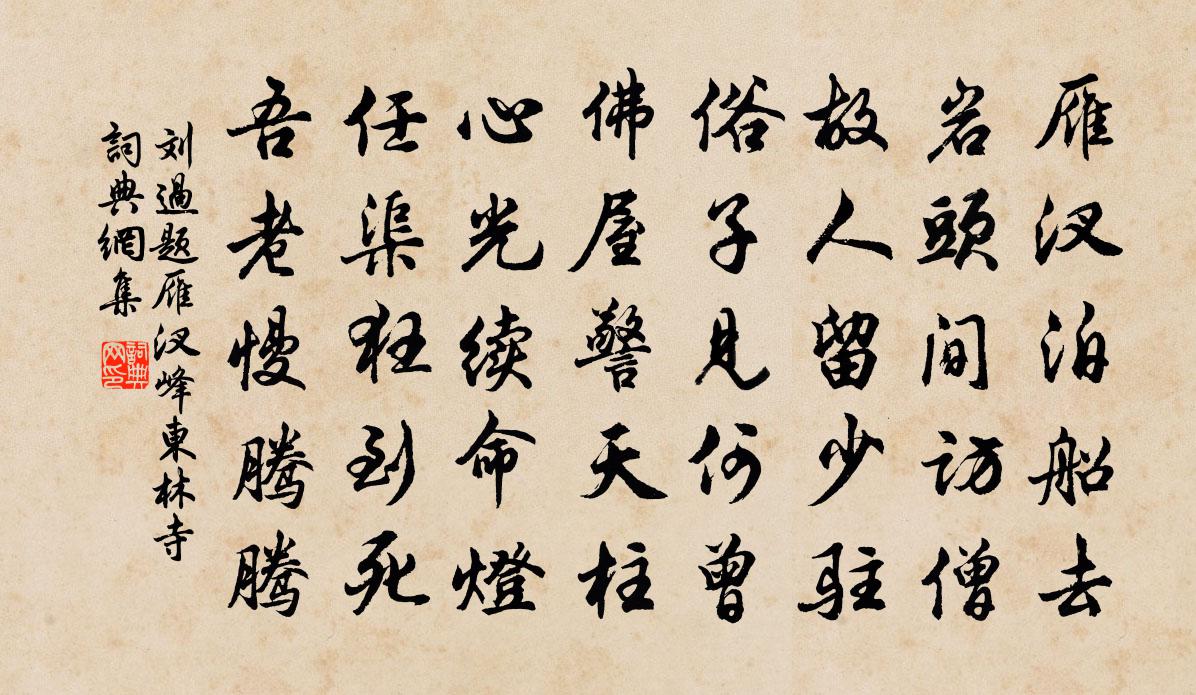 雁汊泊船去
岩頭间访僧
故人留少驻
俗子見何曾
佛屋警天柱
心光续命燈
任渠狂到死
吾老慢腾腾
刘過题雁汊峰東林寺
詞典網集
詞典網印